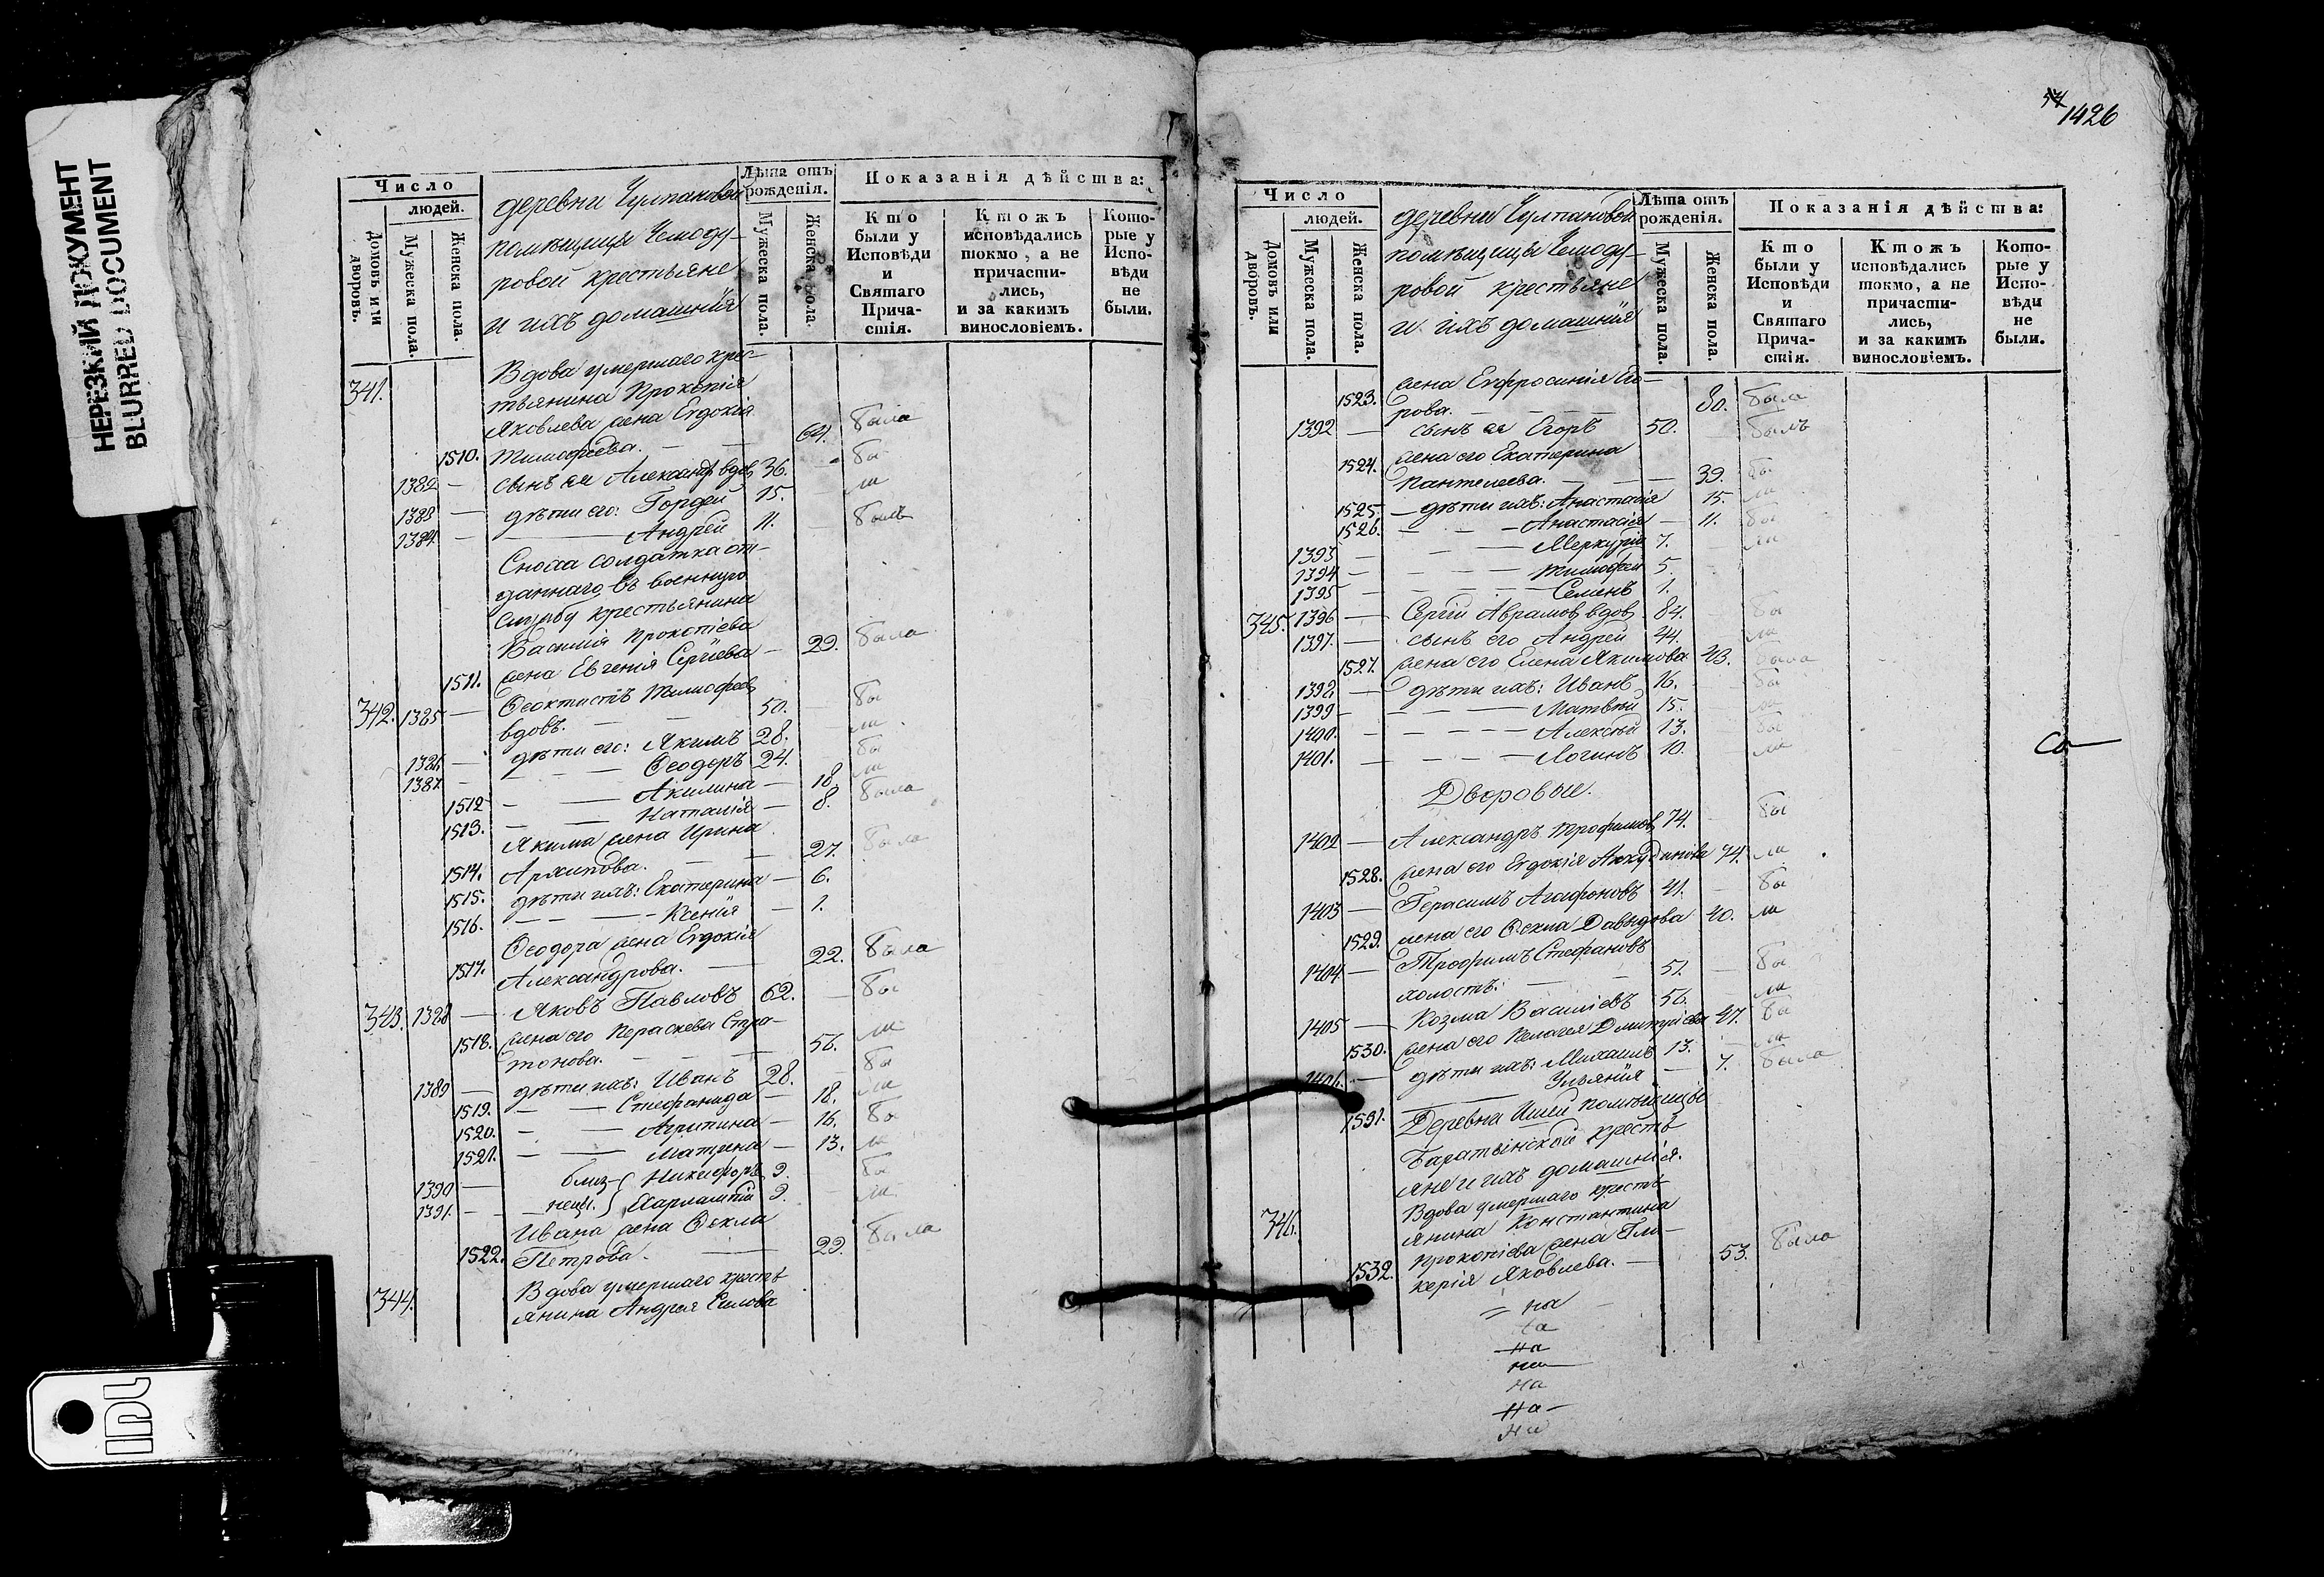 НЕРЕЗКИЙ ДОКУМЕНТ
BLURRED DOCUMENT
Число
людей.
Домовъ или дворовъ.
Мужеска пола.
Женска пола.
деревни Чулпановой
помѣщицы Чемоду-
ровой крестьяне
и ихъ домашнія
Лѣта отъ рожденія.
Мужеска пола.
Женска пола.
Показанія дѣйства:
Кто были у Исповѣди и Святаго Причастія.
Ктожъ исповѣдались токмо, а не причастились, и за какимъ винословіемъ.
Которые у Исповѣди не были.
341. Вдова умершаго крес-
тьянина Прокопія
Яковлева жена Евдокія
1510. Тимофеева. — — 64. была
1382 — сынъ ея Александръ вдов 36. — бы
1383 — дѣти его: Гордей 15. — ли
1384 — — Андрей 11. — былъ
Сноха солдатка от-
даннаго въ военную
службу крестьянина
Василія Прокопіева
1511. жена Евгенія Сергіева — 29. была
342. 1385 — Феоктистъ Тимофеев
вдовъ. — — 50. — бы
1386 — дѣти его: Якимъ 28. — ли
1387 — — Феодоръ 24. бы
1512 — — Акилина — 18. ли
1513. — — Наталія — 8. была
Якима жена Ирина
1514. Архипова. — — 27. была
1515. дѣти ихъ: Екатерина — 6.
1516. — — Ксенія — 1.
Феодора жена Евдокія
1517. Александрова. — 22. была
343. 1388 — Яковъ Павловъ 62. — бы
1518. жена его Параскева Стра-
тонова. — — 56. ли
1389 — дѣти ихъ: Иванъ 28. — бы
1519. — — Стефанида — 18. ли
1520. — — Агрипина — 16. бы
1521. — — Матрена — 13. ли
1390 — близ- Никифоръ 9. — бы
1391. — нецы. Харлампій 9. — ли
Ивана жена Фекла
1522. Петрова. — 29. была
344. Вдова умершаго кресть
янина Андрея Силова
1426
Число
людей.
Домовъ или дворовъ.
Мужеска пола.
Женска пола.
деревни Чулпановой
помѣщицы Чемоду-
ровой крестьяне
и ихъ домашнія
Лѣта отъ рожденія.
Мужеска пола.
Женска пола.
Показанія дѣйства:
Кто были у Исповѣди и Святаго Причастія.
Ктожъ исповѣдались токмо, а не причастились, и за какимъ винословіемъ.
Которые у Исповѣди не были.
1523. жена Евфросинія
рова. — — 80. была
1392 — сынъ ея Егоръ 50. — былъ
1524. жена его Екатерина
Пантелеева. — — 39. бы
1525. — дѣти ихъ: Анастасія 15. ли
1526. — — Анастасія — 11. бы
1393 — — Меркурій 7. — ли
1394 — — Тимофей 5.
1395 — — Семенъ 1.
345. 1396 — Сергій Аврамов вдов 84. — бы
1397. — сынъ его Андрей 44. — ли
1527. жена его Елена Якимова 43. была
1392 — дѣти ихъ: Иванъ 16. — бы
1399 — — Матвѣй 15. — ли
1400. — — Алексѣй 13. — бы
1401. — — Логинъ 10. — ли
Са
Дворовые.
1402 — Александръ Трофимов 74. — бы
1528. жена его Евдокія Анкудинова 74. ли
1403 — Герасимъ Агафоновъ 41. — бы
1529. жена его Фекла Давыдова 40. ли
1404 — Трофимъ Стефановъ
холостъ. — — 51. — бы
1405 — Козма Василіевъ 56. — ли
1530. жена его Пелагея Дмитріева 47. бы
1406. — дѣти ихъ: Михаилъ 13. — ли
1531. — Ульянія — 7. была
Деревни Ишей помѣщицы
Баратынской кресть
яне и ихъ домашнія.
346. Вдова умершаго кресть
янина Константина
Прокопіева жена Гли-
1532. керія Яковлева. — 53. была
на
на
на
на
на
на